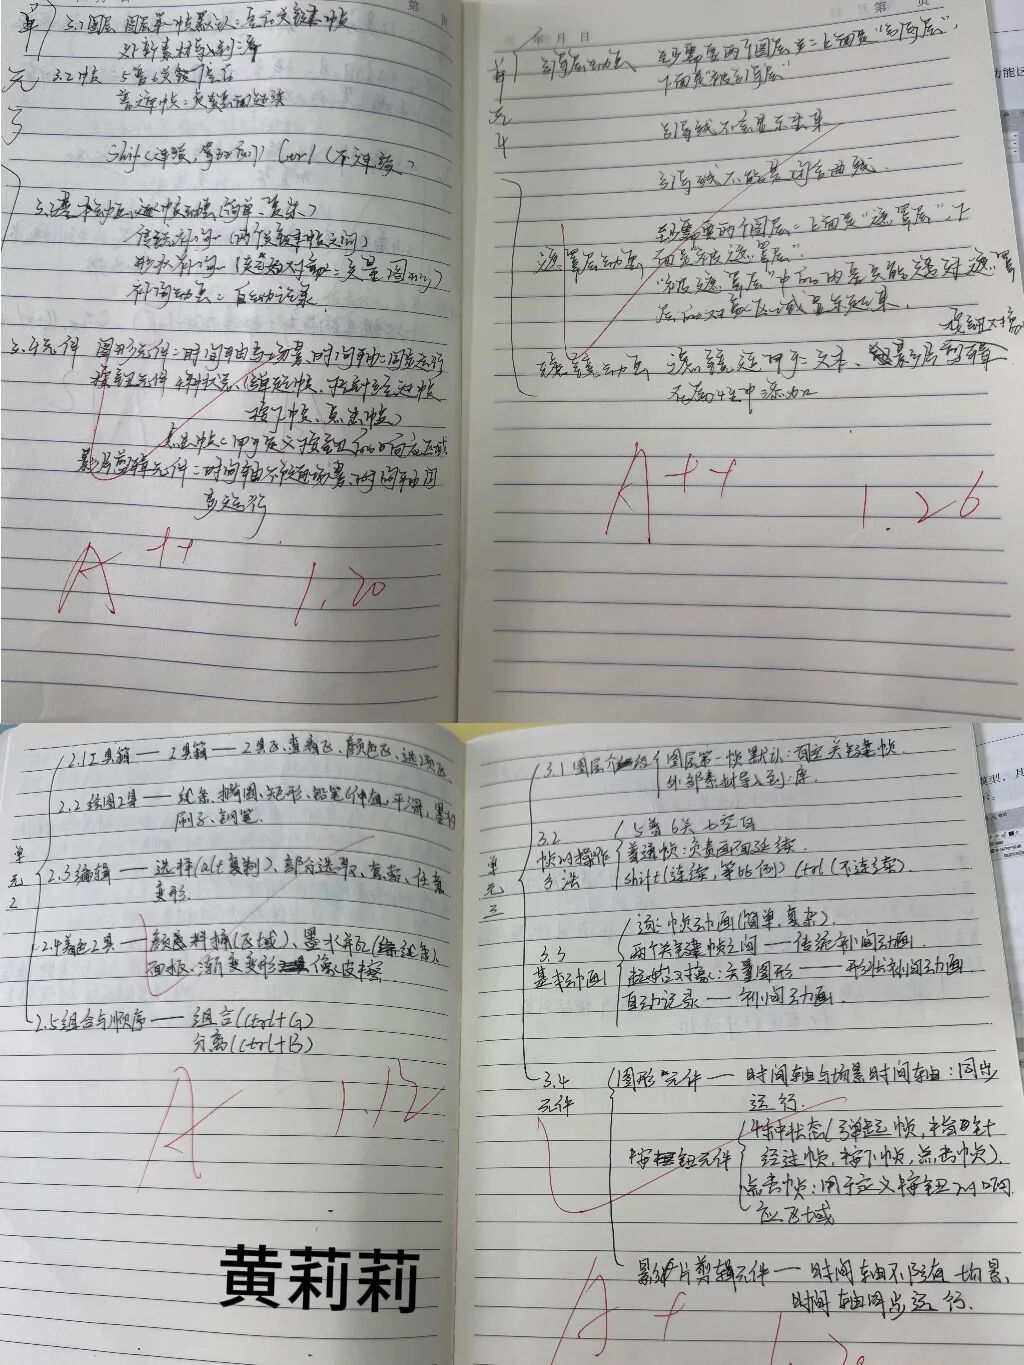 第 页
单元3
3.1图层 图层第一帧默认：空白关键帧
外部素材导入到：库
3.2帧 5普6关7空白
普通帧：负责画面延续
shift(连续，等比例) Ctrl (不连续)
3.3基本动画 逐帧动画(简单、复杂)
传统补间 (两个关键帧之间)
形状补间 (起始对象：矢量图形)
补间动画：自动记录
3.4元件 图形元件：时间轴与场景时间轴：同步运行
按钮元件 4种状态(弹起帧、指针经过帧
按下帧、点击帧)
点击帧：用于定义按钮的响应区域
影片剪辑元件：时间轴不依赖场景、时间轴同
步运行
A++ 1.20
第 页
年 月 日
单元4
引导层动画 至少需要两个图层：上面是“引导层”，
下面是“被引导层”
引导线不会显示出来
引导线不能是闭合曲线.
至少需要两个图层：上面是“遮罩层”，下
遮罩层动画 面是“被遮罩层”
“被遮罩层”中的内容只能透过遮罩
层的对象区域显示出来.
按钮对象
滤镜动画 滤镜适用于：文本、影片剪辑
在属性中添加
A++ 1.26
2.1工具箱 — 工具箱 — 工具区、查看区、颜色区、选项区
2.2绘图工具 — 线条、椭圆、矩形、铅笔(伸直，平滑，墨水)
刷子、钢笔.
单元2
2.3编辑 — 选择(alt复制)、部分选取、套索、任意
变形.
2.4着色工具 — 颜料桶(区域)、墨水瓶(线条)、
面板、渐变变形 橡皮擦
2.5组合与顺序 — 组合(Ctrl+G)
分离(Ctrl+B)
A 1.13
黄莉莉
3.1 图层 图层第一帧默认：空白关键帧.
外部素材导入到：库
单元三
3.2 5普6关7空白
帧的操作 普通帧：负责画面延续.
方法 shift(连续，等比例) Ctrl (不连续)
逐帧动画(简单、复杂).
3.3 两个关键帧之间 — 传统补间动画
基本动画 起始对象：矢量图形 — 形状补间动画
自动记录 — 补间动画.
3.4 图形元件 — 时间轴与场景时间轴：同步
元件 运行.
4种状态(弹起帧，指针
按钮元件 经过帧，按下帧，点击帧).
点击帧：用于定义按钮的响
应区域
影片剪辑元件 — 时间轴不依赖场景，
时间轴同步运行.
A+ 1.20